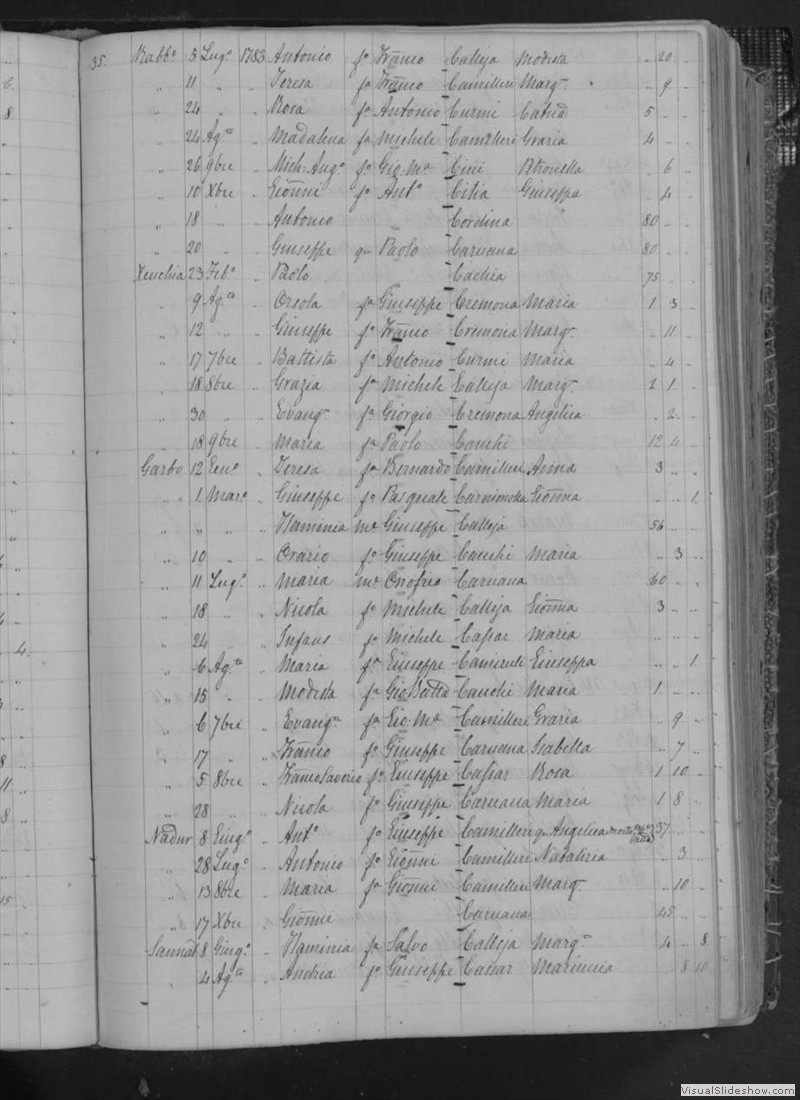 35. Rabb.o 5 Lug.o 1783 Antonio f.o Franco Calleja Modesta .. 20 ..
" 11 " .. Teresa f.a Franco Camilleri Marg.a .. 9 ..
" 24 " .. Rosa f.a Antonio Curmi Catna 5 .. ..
" 24 Ag.to .. Madalena f.a Michele Camilleri Grazia 4 .. ..
" 26 9bre .. Mich: Ang.o f.o Gio: Ma Cini Petronella .. 6 ..
" 10 Xbre .. Gionni f.o Ant.o Cilia Giuseppa .. 4 ..
" 18 .. Antonio Cordina 80
" 20 .. Giuseppe q.m Paolo Caruana 80
Xeuchia 23 Feb.o .. Paolo Cachia 75
" 9 Ag.to .. Orsola f.a Giuseppe Cremona Maria 1 3 ..
" 12 " .. Giuseppe f.o Franco Cremona Marg.a .. 11 ..
" 17 7bre .. Battista f.o Antonio Curmi Maria .. 4 ..
" 18 8bre .. Grazia f.a Michele Calleja Marg.a 2 1 ..
" 30 " .. Evang.a f.a Giorgio Cremona Angelica .. 2 ..
" 18 9bre .. Maria f.a Paolo Cauchi 12 4 ..
Garbo 12 Gen.o .. Teresa f.a Bernardo Camilleri Anna 3 .. ..
" 1 Mar.o .. Giuseppe f.o Pasquale Gionna .. .. 1
" " " .. Flaminia m.e Giuseppe Calleja 56 .. ..
" 10 " .. Orazio f.o Giuseppe Cauchi Maria .. 3 ..
" 11 Lug.o .. Maria m.e Onofrio Caruana 60 .. ..
" 18 " .. Nicola f.o Michele Calleja Gionna 3 .. ..
" 24 " .. Infans f.o Michele Cassar Maria .. .. ..
" 6 Ag.to .. Maria f.a Giuseppe Giuseppa .. .. 1
" 15 " .. Modesta f.a Gio Batta Cauchi Maria 1 .. ..
" 6 7bre .. Evang.a f.a Gio: Ma Camilleri Grazia .. 9 ..
" 17 " .. Franco f.o Giuseppe Caruana Isabella .. 7 ..
" 5 8bre .. Franco Saverio f.o Giuseppe Cassar Rosa 1 10 ..
" 28 " .. Nicola f.o Giuseppe Caruana Maria 1 8 ..
Nadur 8 Giug.o .. Ant.o f.o Giuseppe Camilleri q. Angelica morto 37 .. ..
" 28 Lug.o .. Antonio f.o Gionni Camilleri Natalizia .. 3 ..
" 13 8bre .. Maria f.a Gionni Camilleri Marg.a .. 10 ..
" 17 Xbre .. Gionni Caruana 45 .. ..
Sannat 8 Giug.o .. Flaminia f.a Salvo Calleja Marg.a 4 .. 8
" 4 Ag.to .. Andrea f.o Giuseppe Cassar .. 8 10
VisualSlideshow.com